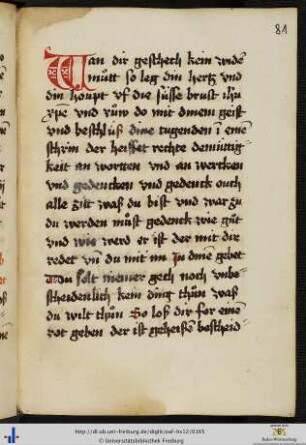 81
Wan dir geschech kein wide
mutt so leg din hertz vnd
din houpt vf die süsse brust ihu
xpe vnd ruw do mit dinem geist
vnd beschluß dine tugenden i eine
schrin der heisset rechte demuttig
keit an wortten vnd an wercken
vnd gedencken vnd gedenck ouch
alle zitt waß du bist vnd war zu
du werden must gedenck wie gut
vnd wie werd er ist der mit dir
redet vn du mit im In dine gebet
Du solt niemer gech noch vnbe
scheidenlich kein ding thun waß
du wilt thun So loß dir for eine
rot geben der ist geheisse bescheid
http://dl.ub.uni-freiburg.de/diglit/auf-hs12/0165
© Universitätsbibliothek Freiburg
Baden-Württemberg